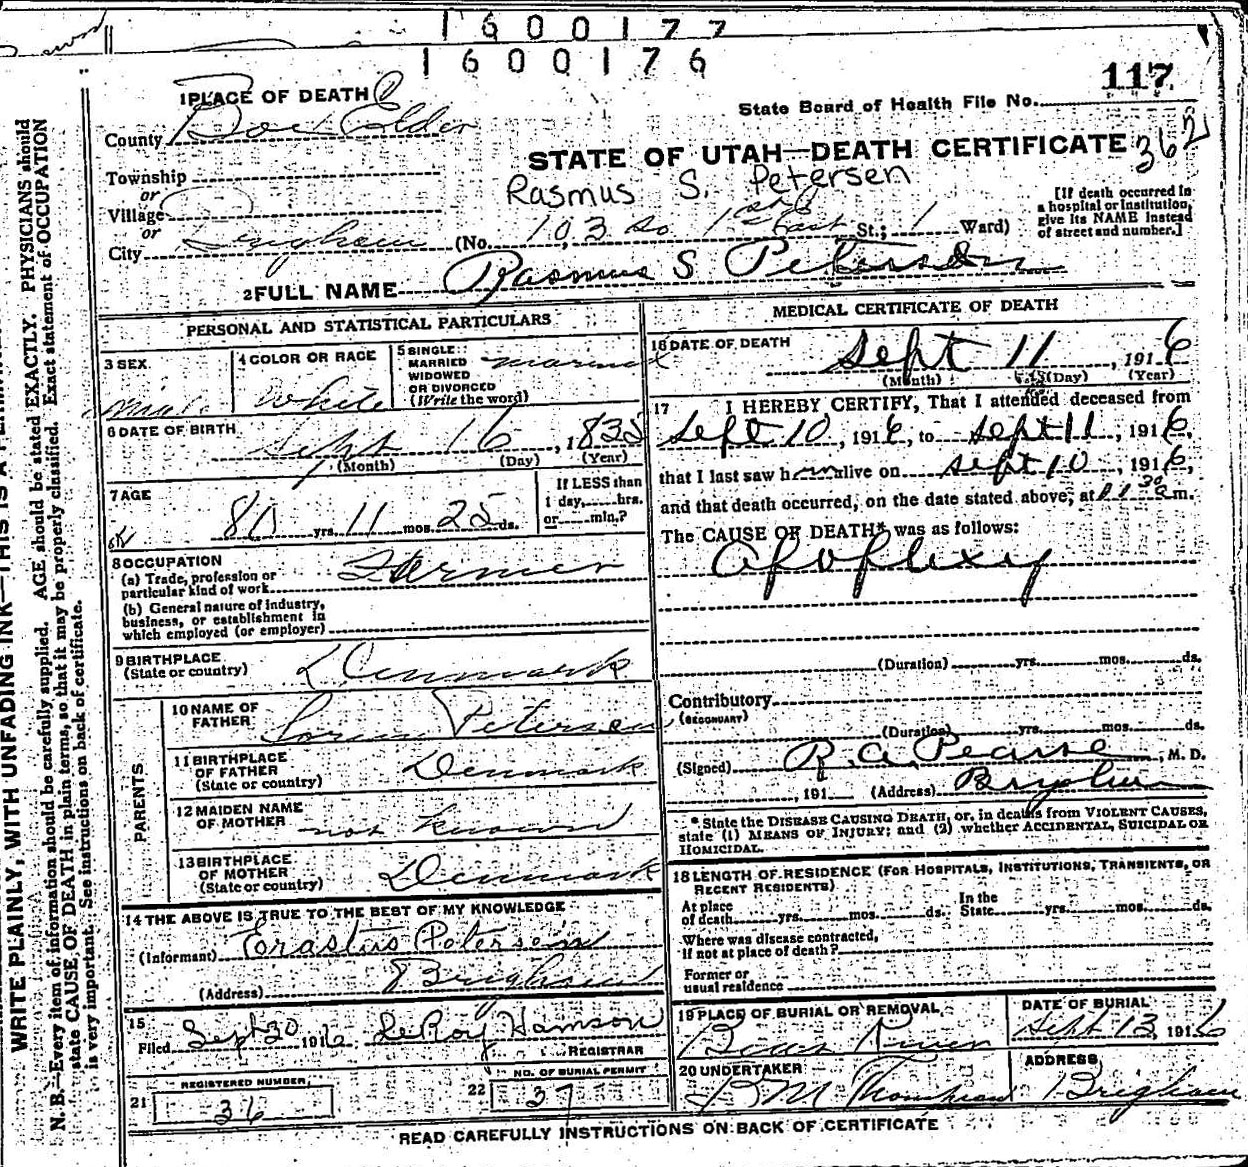 1600177
1600176
117
1 PLACE OF DEATH
State Board of Health File No.
County Box Elder
STATE OF UTAH—DEATH CERTIFICATE 362
Township
or
Village
or
City Brigham (No. 103 So 1st East St.; 1 Ward)
Rasmus S. Petersen
[If death occurred in a hospital or institution, give its NAME instead of street and number.]
2 FULL NAME Rasmus S Petersen
PERSONAL AND STATISTICAL PARTICULARS
3 SEX Male
4 COLOR OR RACE White
5 SINGLE: MARRIED WIDOWED OR DIVORCED (Write the word) married
6 DATE OF BIRTH Sept 16, 1835
(Month) (Day) (Year)
7 AGE 80 yrs. 11 mos. 25 ds.
If LESS than 1 day, hrs. or min.?
8 OCCUPATION
(a) Trade, profession or particular kind of work Farmer
(b) General nature of industry, business, or establishment in which employed (or employer)
9 BIRTHPLACE (State or country) Denmark
PARENTS
10 NAME OF FATHER Soren Petersen
11 BIRTHPLACE OF FATHER (State or country) Denmark
12 MAIDEN NAME OF MOTHER not known
13 BIRTHPLACE OF MOTHER (State or country) Denmark
14 THE ABOVE IS TRUE TO THE BEST OF MY KNOWLEDGE
(Informant) Erastus Petersen
(Address) Brigham
15 Filed Sept 30 1916. LeRoy
REGISTRAR
21 REGISTERED NUMBER 36
22 NO. OF BURIAL PERMIT 37
MEDICAL CERTIFICATE OF DEATH
16 DATE OF DEATH Sept 11, 1916
(Month) (Day) (Year)
17 I HEREBY CERTIFY, That I attended deceased from
Sept 10, 1916, to Sept 11, 1916,
that I last saw him alive on Sept 10, 1916,
and that death occurred, on the date stated above, at m.
The CAUSE OF DEATH* was as follows:
Apoplexy
(Duration) yrs. mos. ds.
Contributory
(SECONDARY)
(Duration) yrs. mos. ds.
(Signed) R. A. Pearse, M. D.
, 191 (Address) Brigham
* State the DISEASE CAUSING DEATH, or, in deaths from VIOLENT CAUSES, state (1) MEANS OF INJURY; and (2) whether ACCIDENTAL, SUICIDAL OR HOMICIDAL.
18 LENGTH OF RESIDENCE (FOR HOSPITALS, INSTITUTIONS, TRANSIENTS, OR RECENT RESIDENTS)
At place of death yrs. mos. ds. In the State yrs. mos. ds.
Where was disease contracted, if not at place of death?
Former or usual residence
19 PLACE OF BURIAL OR REMOVAL Bear River
DATE OF BURIAL Sept 13, 1916
20 UNDERTAKER
ADDRESS Brigham
READ CAREFULLY INSTRUCTIONS ON BACK OF CERTIFICATE
WRITE PLAINLY, WITH UNFADING INK—THIS IS A
N. B.—Every item of information should be carefully supplied. AGE should be stated EXACTLY. PHYSICIANS should
state CAUSE OF DEATH in plain terms, so that it may be properly classified. Exact statement of OCCUPATION
is very important. See instructions on back of certificate.